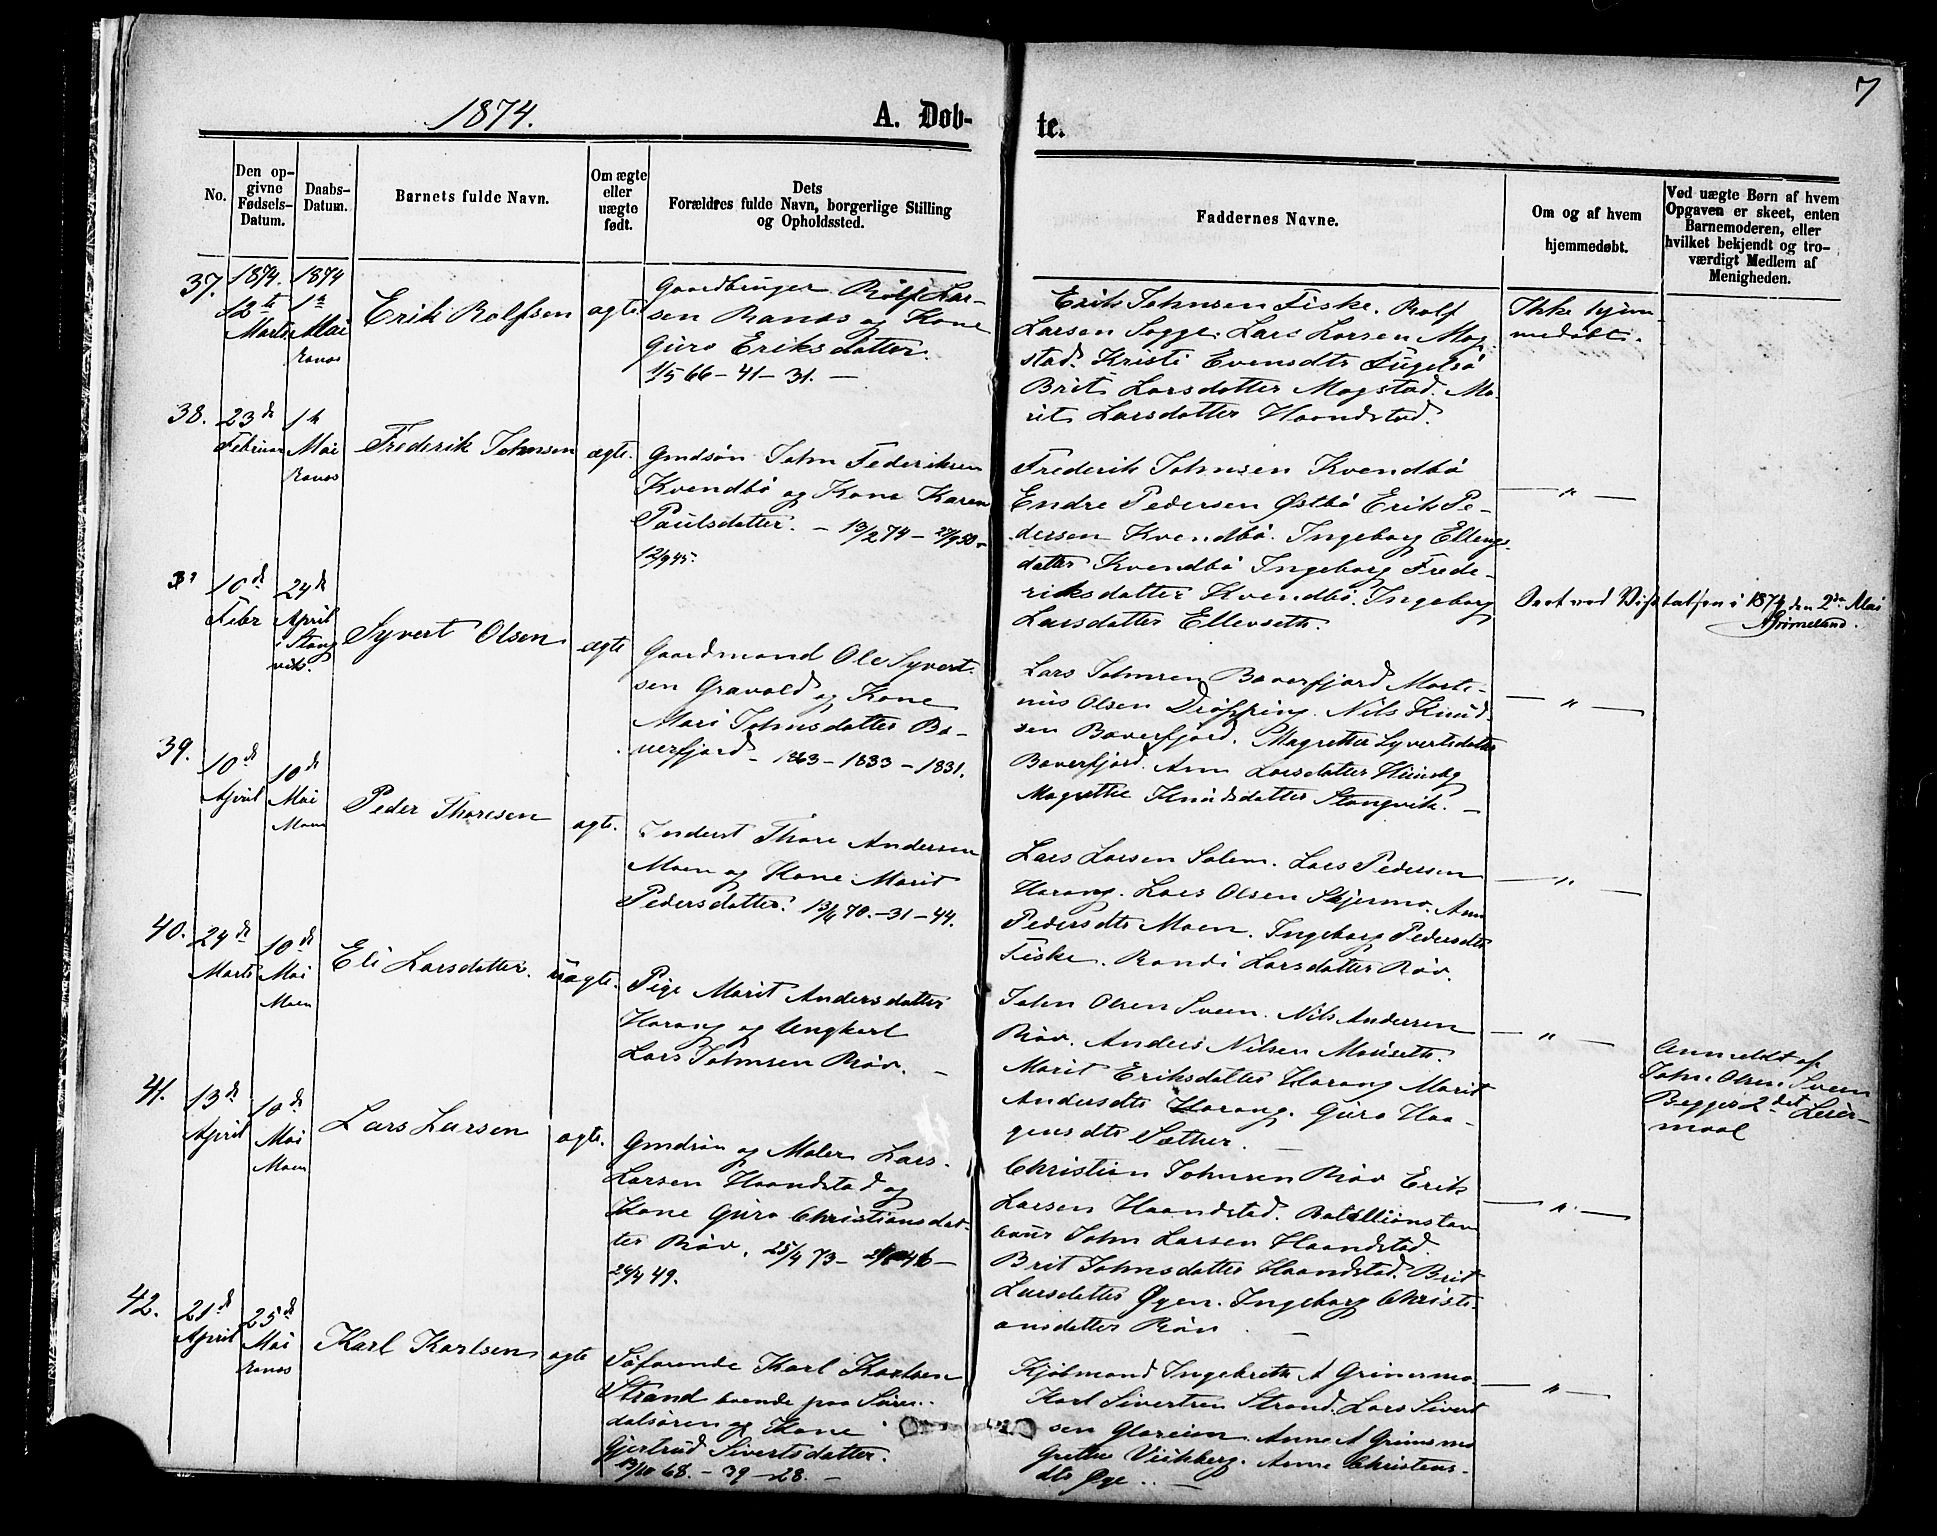 7
1874. A. Døb- te.
No.
Den op-
givne
Fødsels-
Datum.
Daabs-
Datum.
Barnets fulde Navn.
Om ægte
eller
uægte
født.
Dets
Forældres fulde Navn, borgerlige Stilling
og Opholdssted.
Faddernes Navne.
Om og af hvem
hjemmedøbt.
Ved uægte Børn af hvem
Opgaven er skeet, enten
Barnemoderen, eller
hvilket bekjendt og tro-
værdigt Medlem af
Menigheden.
37.
1874.
12te
Marts
1874
1ste
Mai
Ranes
Erik Rolfsen
ægte
Gaardbruger Rolf Lar-
sen Ranes og Kone
Guro Eriksdatter.
1/5 66 - 41 - 31. -
Erik Johnsen Fiske. Rolf
Larsen Sogge. Lars Larsen Mog-
stad. Kristi Evensdtr Fugelsø
Brit Larsdatter Mogstad. Ma-
rit Larsdatter Haandstad.
Ikke hjem-
medøbt.
38.
23de
Februar
1ste
Mai
Ranes
Frederik Johnsen
ægte.
Gmdsøn John Federiksen
Kvendbø og Kone Karen
Paulsdatter. - 13/2 74 - 27/9 50 -
12/9 45.
Frederik Johnsen Kvendbø
Endre Pedersen Østbø Erik Pe-
dersen Kvendbø. Ingeborg Ellings-
datter Kvendbø Ingeborg Frede-
riksdatter Kvendbø. Ingeborg
Larsdatter Ellevseth.
— " —
Seet ved Visitatsen i 1874 den 2den Mai
Grimelund.
10de
Febr
24de
April
i Stang
vik.
Syvert Olsen
ægte
Gaardmand Ole Syvert-
sen Gravold og Kone
Mari Johnsdatter Bø-
verfjord - 1863 - 1833 - 1831.
Lars Johnsen Bøverfjord Marte-
nus Olsen Drøpping. Nils Knud-
sen Bøverfjord. Magrethe Syvertsdatter
Bøverfjord. Ann Larsdatter
Magrethe Knudsdatter Stangvik. -
— " —
39.
10de
April
10de
Mai
Moen
Peder Thoresen
ægte.
Inderst Thore Andersen
Moen og Kone Marit
Pedersdatter. 13/4 70. - 31 - 44.
Lars Larsen Solem. Lars Pedersen
Harang. Lars Olsen Skjermo. Ann
Pedersdtr Moen. Ingeborg Pedersdtr
Fiske. Randi Larsdatter Røv.
— " —
40.
24de
Marts
10de
Mai
Moen
Eli Larsdatter.
uægte.
Pige Marit Andersdatter
Harang og Ungkarl
Lars Johnsen Røv. -
John Olsen Sveen. Nils Andersen
Røv. Anders Nilsen Mauseth.
Marit Eriksdatter Harang Marit
Andersdtr Harang. Guro Haa-
gensdtr Sæther.
— " —
Anmeldt af
John Olsen Sveen
Begges 2det Leier-
maal
41.
13de
April
10de
Mai
Moen
Lars Larsen
ægte.
Gmdsøn og Maler Lars
Larsen Haandstad og
Kone Guro Christiansdat-
ter Røv. 25/4 73 - 46 -
24/4 49.
Christian Johnsen Røv Erik
Larsen Haandstad. Batallionstam
bour John Larsen Haandstad.
Brit Johnsdatter Haandstad. Brit
Larsdatter Øyen. Ingeborg Christi-
ansdatter Røv. -
— " —
42.
21de
April
25de
Mai
Ranes
Karl Karlsen
ægte
Søfarende Karl Karlsen
Strand boende paa Suren-
dalsøren og Kone
Gjertrud Sivertsdatter.
13/10 68. - 39 - 28. -
Kjøbmand Ingebreth A Grinsmo.
Karl Sivertsen Strand. Lars Sivert
sen Glæreim. Anne A Grinsmo
Grethe Viikberg. Anne Christens-
dtr Øye. -
— " —